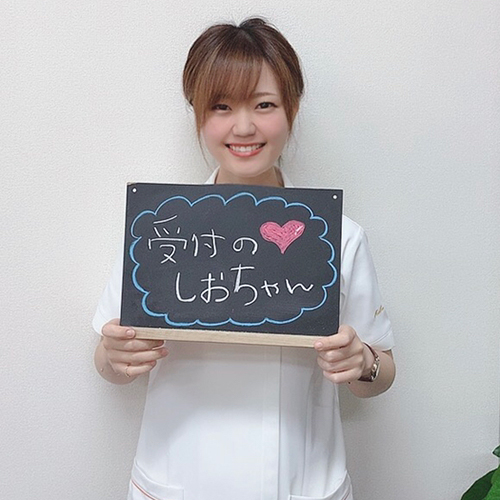 受付の
しおちゃん